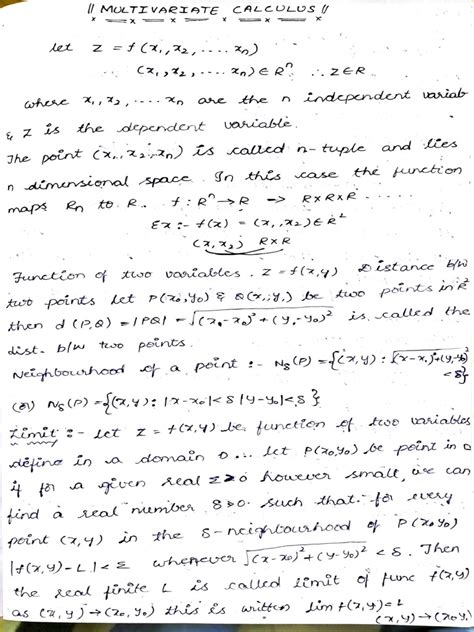 || MULTIVARIATE CALCULUS ||
let Z = f(x₁, x₂, .... xₙ)
(x₁, x₂, .... xₙ) ∈ Rⁿ ∴ Z ∈ R
where x₁, x₂, .... xₙ are the n independent variab
& Z is the dependent variable.
The point (x₁, x₂, xₙ) is called n-tuple and lies
n dimensional space. In this case the function
maps Rn to R. f : Rⁿ → R => R x R x R ....
Ex :- f(x) = (x₁, x₂) ∈ R²
(x₁, x₂) R x R
Function of two variables. Z = f(x, y) Distance b/w
two points let P(x₀, y₀) & Q(x₁, y₁) be two points in R²
then d(P, Q) = |PQ| = √(x₁ - x₀)² + (y₁ - y₀)² is called the
dist. b/w two points.
Neighbourhood of a point :- N_δ(P) = {(x, y) : √(x - x₁)² + (y - y₀)² < δ}
(or) N_δ(P) = {(x, y) : |x - x₀| < δ |y - y₀| < δ}
Limit :- let Z = f(x, y) be function of two variables
define in a domain D... let P(x₀ y₀) be point in D
if for a given real ε > 0 however small, we can
find a real number δ > 0 such that for every
point (x, y) in the δ-neighbourhood of P(x₀ y₀)
|f(x, y) - L| < ε whenever √(x - x₀)² + (y - y₀)² < δ. Then
the real finite L is called limit of func f(x, y)
as (x, y) → (x₀, y₀) this is written lim f(x, y) = L
(x, y) → (x₀ y₀